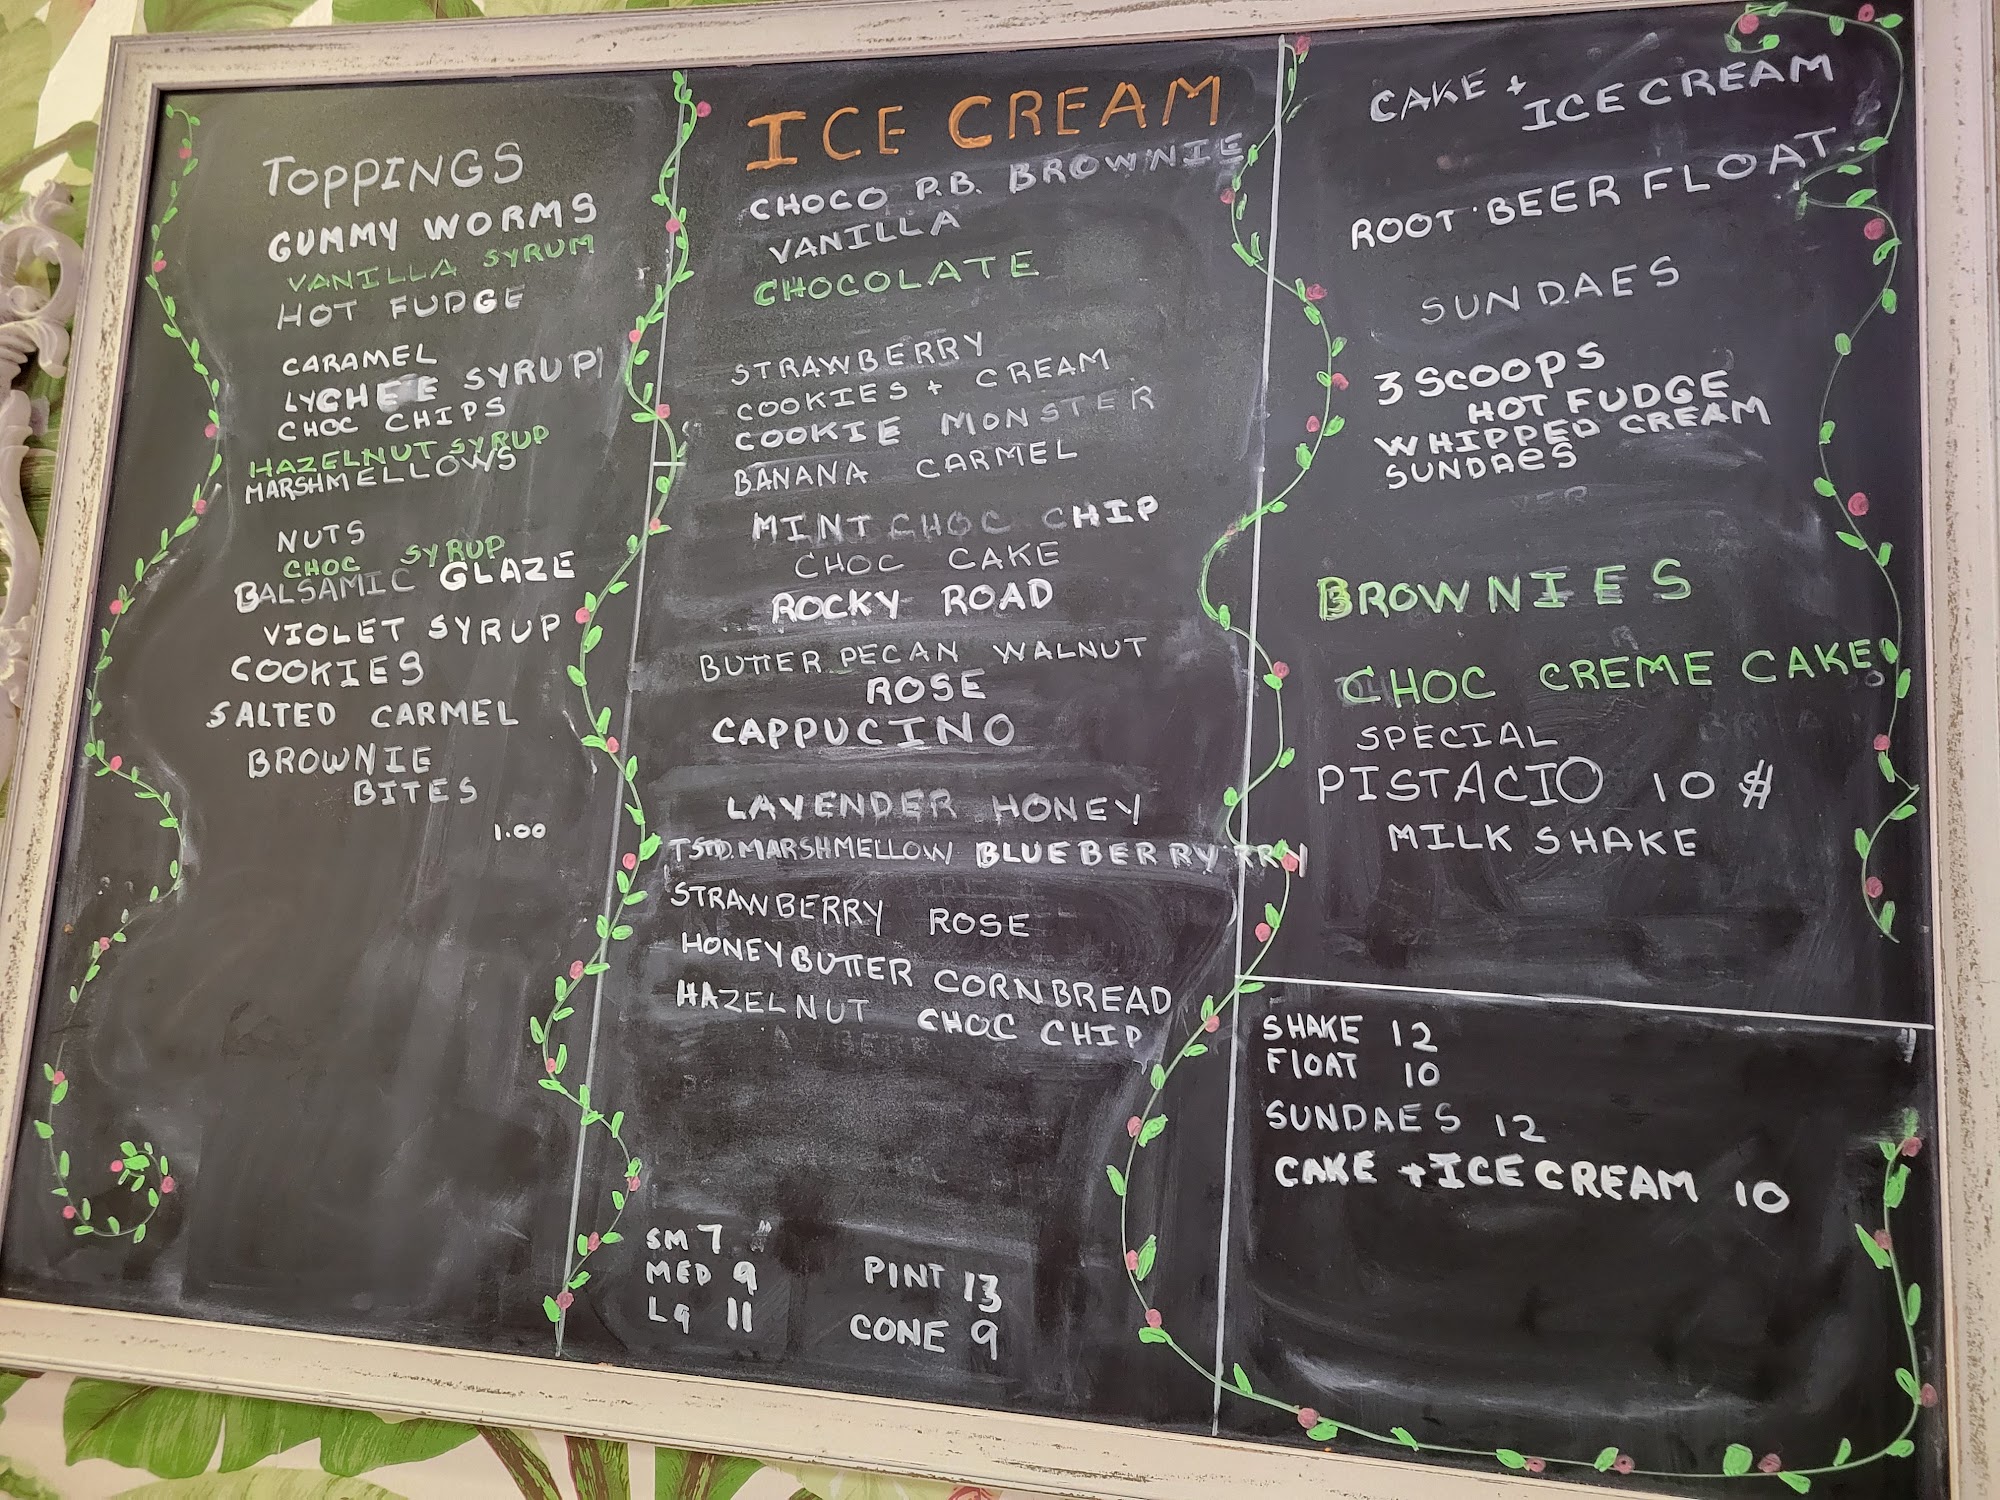 TOPPINGS
GUMMY WORMS
VANILLA SYRUM
HOT FUDGE
CARAMEL
LYCHEE SYRUP
CHOC CHIPS
HAZELNUT SYRUP
MARSHMELLOWS
NUTS
CHOC SYRUP
BALSAMIC GLAZE
VIOLET SYRUP
COOKIES
SALTED CARMEL
BROWNIE
BITES
1.00
ICE CREAM
CHOCO P.B. BROWNIE
VANILLA
CHOCOLATE
STRAWBERRY
COOKIES + CREAM
COOKIE MONSTER
BANANA CARMEL
MINT CHOC CHIP
CHOC CAKE
ROCKY ROAD
BUTTER PECAN WALNUT
ROSE
CAPPUCINO
LAVENDER HONEY
TSTD. MARSHMELLOW BLUEBERRY
STRAWBERRY ROSE
HONEYBUTTER CORNBREAD
HAZELNUT CHOC CHIP
SM 7
MED 9
LG 11
PINT 13
CONE 9
CAKE +
ICE CREAM
ROOT BEER FLOAT
SUNDAES
3 SCOOPS
HOT FUDGE
WHIPPED CREAM
SUNDAES
BROWNIES
CHOC CREME CAKE
SPECIAL
PISTACIO 10 $
MILK SHAKE
SHAKE 12
FLOAT 10
SUNDAES 12
CAKE + ICE CREAM 10